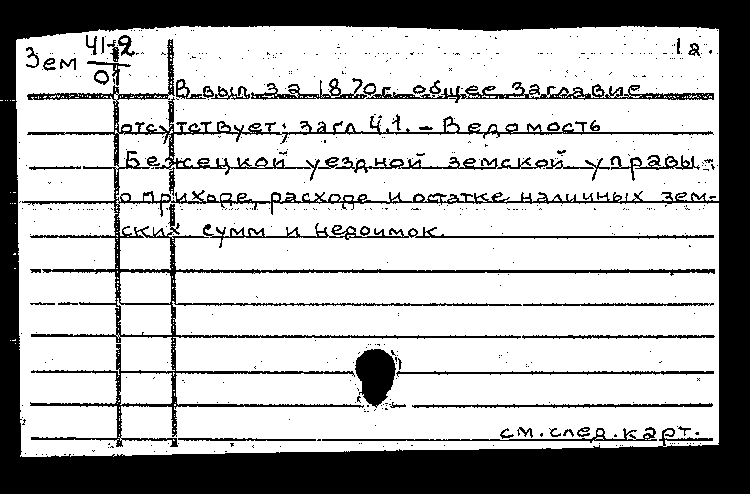 Зем 41-2 1а.
01
В вып. за 1870г. общее заглавие
отсутствует; загл. Ч.1. – Ведомость
Бежецкой уездной земской управы
о приходе, расходе и остатке наличных зем-
ских сумм и недоимок.
см. след. карт.